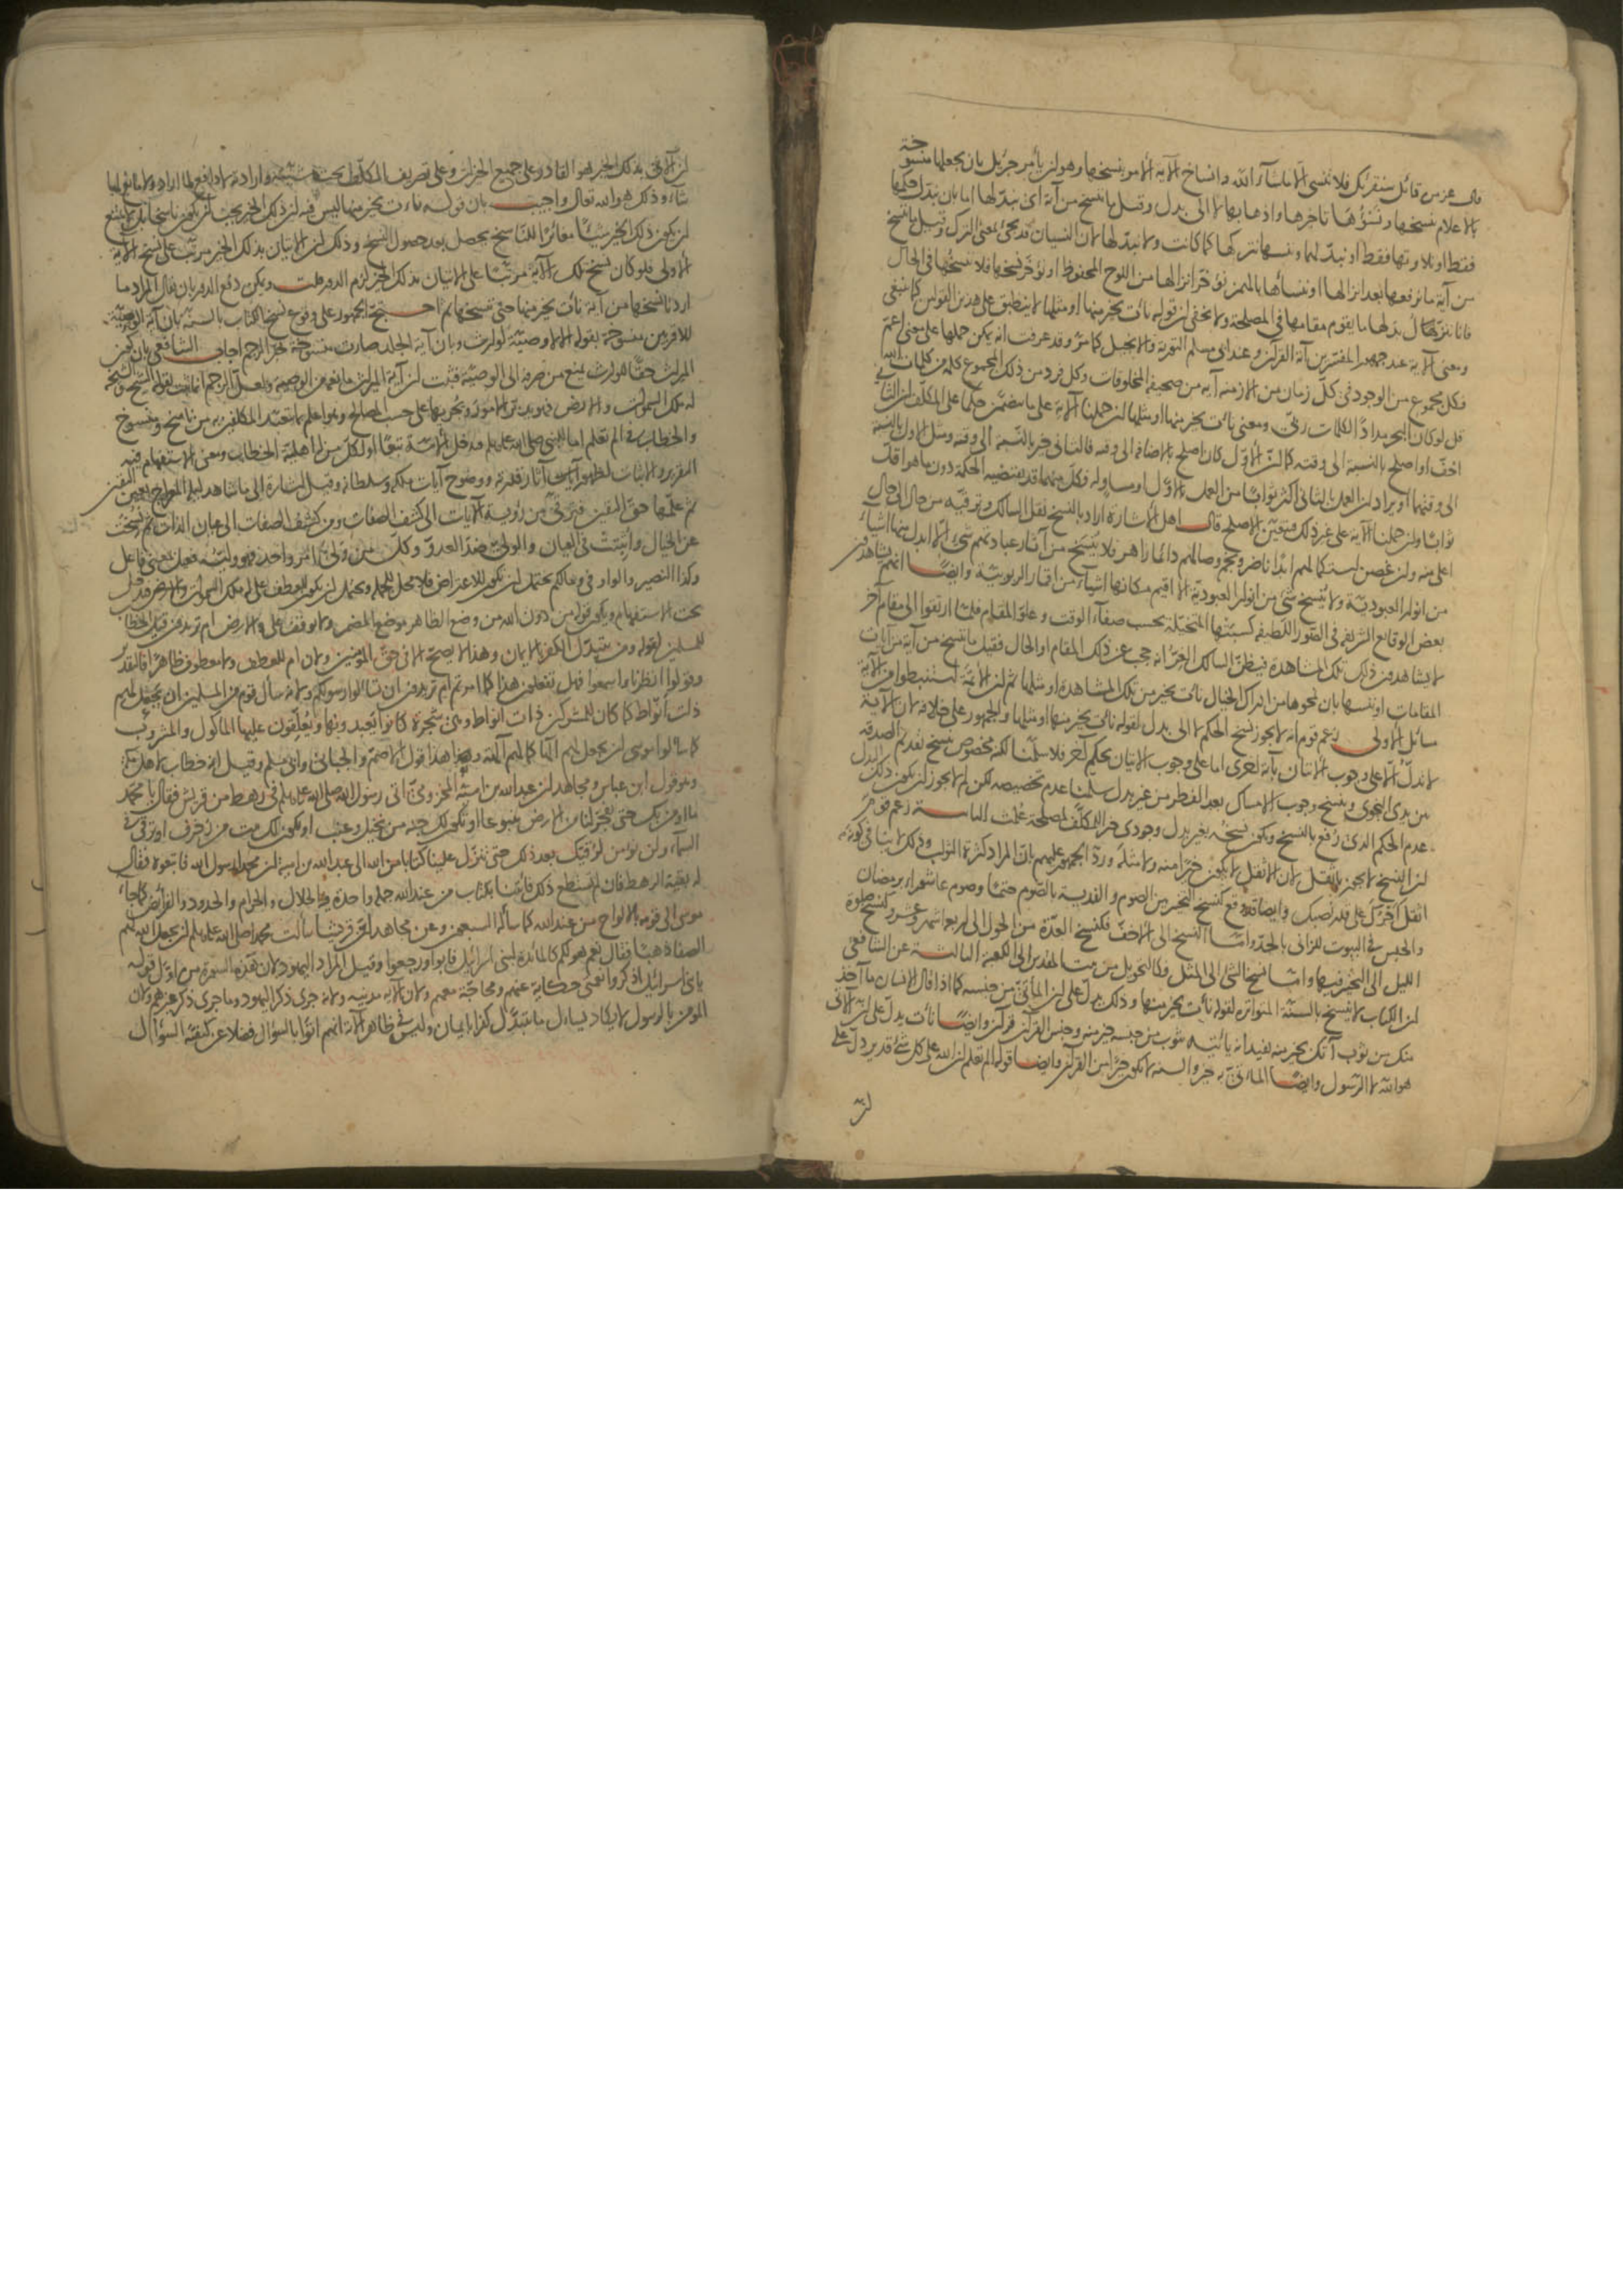 قال عز من قائل سنقرئك فلا تنسى الا ما شاء الله وانساخ الآية الأمر بنسخها وهو ان يأمر جبريل بان يجعلها منسوخة
بالاعلام بنسخها ونسؤها تأخيرها واذهابها لا الى بدل وقيل ما ننسخ من آية اى نبدلها اما بان نبدل حكمها
فقط او تلاوتها فقط او نبدلهما او ننسها نتركها كما كانت ولا نبدلها لان النسيان قد يجئ بمعنى الترك وقيل ما ننسخ
من آية ما نرفعها بعد انزالها او ننسأها بالهمز نؤخر انزالها من اللوح المحفوظ او نؤخر نسخها فلا ننسخها في الحال
فانا ننزل بدلها ما يقوم مقامها في المصلحة ولا يخفى ان قوله نأت بخير منها او مثلها لا ينطبق على هذين القولين كما ينبغى
ومعنى الآية عند جمهور المفسرين آية القرآن وعند ابى مسلم التورية والانجيل كما مر وقد عرفت انه يمكن حملها على معنى اعم
فكل مجموع من الوجود في كل زمان من الازمنة آية من صحيفة المخلوقات وكل فرد من ذلك المجموع كلمة من كلمات الله
قل لو كان البحر مدادا لكلمات ربى ومعنى نأت بخير منها او مثلها ان حملنا الآية على ما يتضمن حكما على المكلف ان الثانى
اخف او اصلح بالنسبة الى وقته كما ان الاول كان اصلح بالاضافة الى وقته فالثانى خير بالنسبة الى وقته ومثل الاول بالنسبة
الى وقتهما او يراد ان العمل بالثانى اكثر ثوابا من العمل بالاول او مساو له فكل منهما قد يقتضيه الحكمة دون ما هو اقل
ثوابا وان حملنا الآية على غير ذلك فيتعين الاصلح قال اهل الاشارة اراد بالنسخ نقل السالك وترقيه من حال الى حال
اعلى منه وان غصن انسه كما لهم ابدا ناضر ونجم وصالهم دائما زاهر فلا ينسخ من آثار عبادتهم شئ الا ابدل منها اشياء
من انوار العبودية ولا ينسخ شئ من انوار العبودية الا اقيم مكانها اشياء من اقمار الربوبية وايضا انهم يشاهدون
بعض الوقايع الشريفة في الصور اللطيفة كسبتها المتخيلة بحسب صفاء الوقت وعلو المقام فلما ارتقوا الى مقام آخر
لا يشاهدون ذلك تلك المشاهدة فيظن السالك الغر انه حجب عن ذلك المقام او الحال فقيل ما ننسخ من آية من آيات
المقامات او ننسها بان نمحوها من ادراك الخيال نأت بخير من تلك المشاهدة او مثلها ثم ان الائمة استنبطوا من الآية
مسائل الاولى زعم قوم انه لا يجوز نسخ الحكم لا الى بدل لقوله نأت بخير منها او مثلها والجمهور على خلافه لان الآية
لا تدل الا على وجوب الاتيان بآية اخرى اما على وجوب الاتيان بحكم آخر فلا سلمنا لكنه مخصوص بنسخ تقديم الصدقة
بين يدى النجوى وبنسخ وجوب الامساك بعد الفطر من غير بدل سلمنا عدم تخصيصه لكن لم لا يجوز ان يكون ذلك البدل
عدم الحكم الذى رفع بالنسخ ويكون نسخه بغير بدل وجودى خيرا للمكلف لمصلحة علمت الثانية زعم قوم
ان النسخ لا يجوز بالاثقل لان الاثقل لا يكون خيرا منه ولا مثله ورد الجمهور عليهم بان المراد كثرة الثواب وذلك لا ينافي كونه
اثقل كاجرك على قدر نصبك وايضا قد وقع كنسخ التخيير بين الصوم والفدية بالصوم حتما وصوم عاشوراء برمضان
والحبس في البيوت للزانى بالحد واما النسخ الى الاخف فكنسخ العدة من الحول الى اربعة اشهر وعشر وكنسخ صلوة
الليل الى التخيير فيها واما نسخ الشئ الى المثل فكالتحويل من بيت المقدس الى الكعبة الثالثة عن الشافعى
ان الكتاب لا ينسخ بالسنة المتواترة لقوله نأت بخير منها وذلك يدل على ان المأتى من جنسه كما اذا قال الانسان ما آخذ
منك من ثوب آتك بخير منه يفيد انه يأتيه بثوب من جنسه خير منه وجنس القرآن قرآن وايضا نأت يدل على ان الآتى
هو الله لا الرسول وايضا المأتى به خير والسنة لا تكون خيرا من القرآن وايضا قوله الم تعلم ان الله على كل شئ قدير دل على
ان
ان الآتى بذلك الخير هو القادر على جميع الخيرات وعلى تصريف المكلف تحت مشيئته وارادته لا دافع لما اراد ولا مانع لما
شاء وذلك هو الله تعالى واجيب بان قوله نأت بخير منها ليس فيه ان ذلك الخير يجب ان يكون ناسخا بل لا يمتنع
ان يكون ذلك الخير شيئا مغايرا للناسخ يحصل بعد حصول النسخ وذلك ان الاتيان بذلك الخير مرتب على نسخ الآية
الاولى فلو كان نسخ تلك الآية مرتبا على الاتيان بذلك الخير لزم الدور قلت ويمكن دفع الدور بان يقال المراد ما
اردنا نسخها من آية نأت بخير منها حتى تنسخها ثم احتج الجمهور على وقوع نسخ الكتاب بالسنة بان آية الوصية
للاقربين منسوخة بقوله الا لا وصية لوارث وبان آية الجلد صارت منسوخة بخبر الرجم اجاب الشافعى بان كون
الميراث حقا للوارث يمنع من صرفه الى الوصية فثبت ان آية الميراث مانعة من الوصية ولعل الرجم انما ثبت بقوله الشيخ والشيخة
له ملك السموات والارض فهو يدبر الامور ويجريها على حسب المصالح وهو اعلم بما تعبد المكلفين به من ناسخ ومنسوخ
والخطاب في الم تعلم اما للنبى صلى الله عليه وسلم فدخل الامة تبعا او لكل من له اهلية الخطاب ومعنى الاستفهام فيه
التقرير والاثبات لظهور آيات آثار قدرته ووضوح آيات ملكه وسلطانه وقيل اشارة الى ما شاهد ليلة المعراج بعين اليقين
ثم علمها حق اليقين فترقى من رؤية الآيات الى كشف الصفات ومن كشف الصفات الى عيان الذات ثم نسخت
عن الخيال واثبتت في العيان والولى ضد العدو وكل من ولى امر واحد فهو وليه فعيل بمعنى فاعل
وكذا النصير والواو في وما لكم يحتمل ان تكون للاعتراض فلا محل للجملة ويحتمل ان تكون للعطف على له ملك السموات والارض فدخل
تحت الاستفهام ويكون قوله من دون الله من وضع الظاهر موضع المضمر ولا يوقف على والارض ام تريدون قيل الخطاب
للمسلمين لقوله ومن يتبدل الكفر بالايمان وهذا لا يصح الا في حق المؤمنين ولان ام للعطف ولا معطوف ظاهرا فالتقدير
وقولوا انظرنا واسمعوا فهل تفعلون هذا كما امرتم ام تريدون ان تسألوا رسولكم ولانه سأل قوم من المسلمين ان يجعل لهم
ذات انواط كما كان للمشركين ذات انواط وهى شجرة كانوا يعبدونها ويعلقون عليها المأكول والمشروب
كما سألوا موسى ان يجعل لهم الها كما لهم آلهة وهذا قول الاصم والجبائى وابى مسلم وقيل انه خطاب لاهل مكة
وهو قول ابن عباس ومجاهد ان عبد الله بن امية المخزومى اتى رسول الله صلى الله عليه وسلم في رهط من قريش فقال يا محمد
ما اومن بك حتى تفجر لنا من الارض ينبوعا او تكون لك جنة من نخيل وعنب او يكون لك بيت من زخرف او ترقى في
السماء ولن نومن لرقيك بعد ذلك حتى تنزل علينا كتابا من الله الى عبد الله بن امية ان محمدا رسول الله فاتبعوه فقال
له بقية الرهط فان لم تستطع ذلك فائتنا بكتاب من عند الله جملة واحدة فيه الحلال والحرام والحدود والفرائض كما جاء
موسى الى قومه بالالواح من عند الله كما سأله السبعون وعن مجاهد ان قريشا سألت محمدا صلى الله عليه وسلم ان يجعل الله لهم
الصفا ذهبا فقال نعم هو لكم كالمائدة لبنى اسرائيل فابوا ورجعوا وقيل المراد اليهود لان هذه السورة من اول قوله
يا بنى اسرائيل اذكروا نعمتى حكاية عنهم ومحاجة معهم ولان الآية مدنية ولانه جرى ذكر اليهود وما جرى ذكر غيرهم ولان
المؤمن بالرسول لا يكاد يسأل ما يتبدل كفرا بايمان وليس في ظاهر الآية انهم اتوا بالسؤال فضلا عن كيفية السؤال